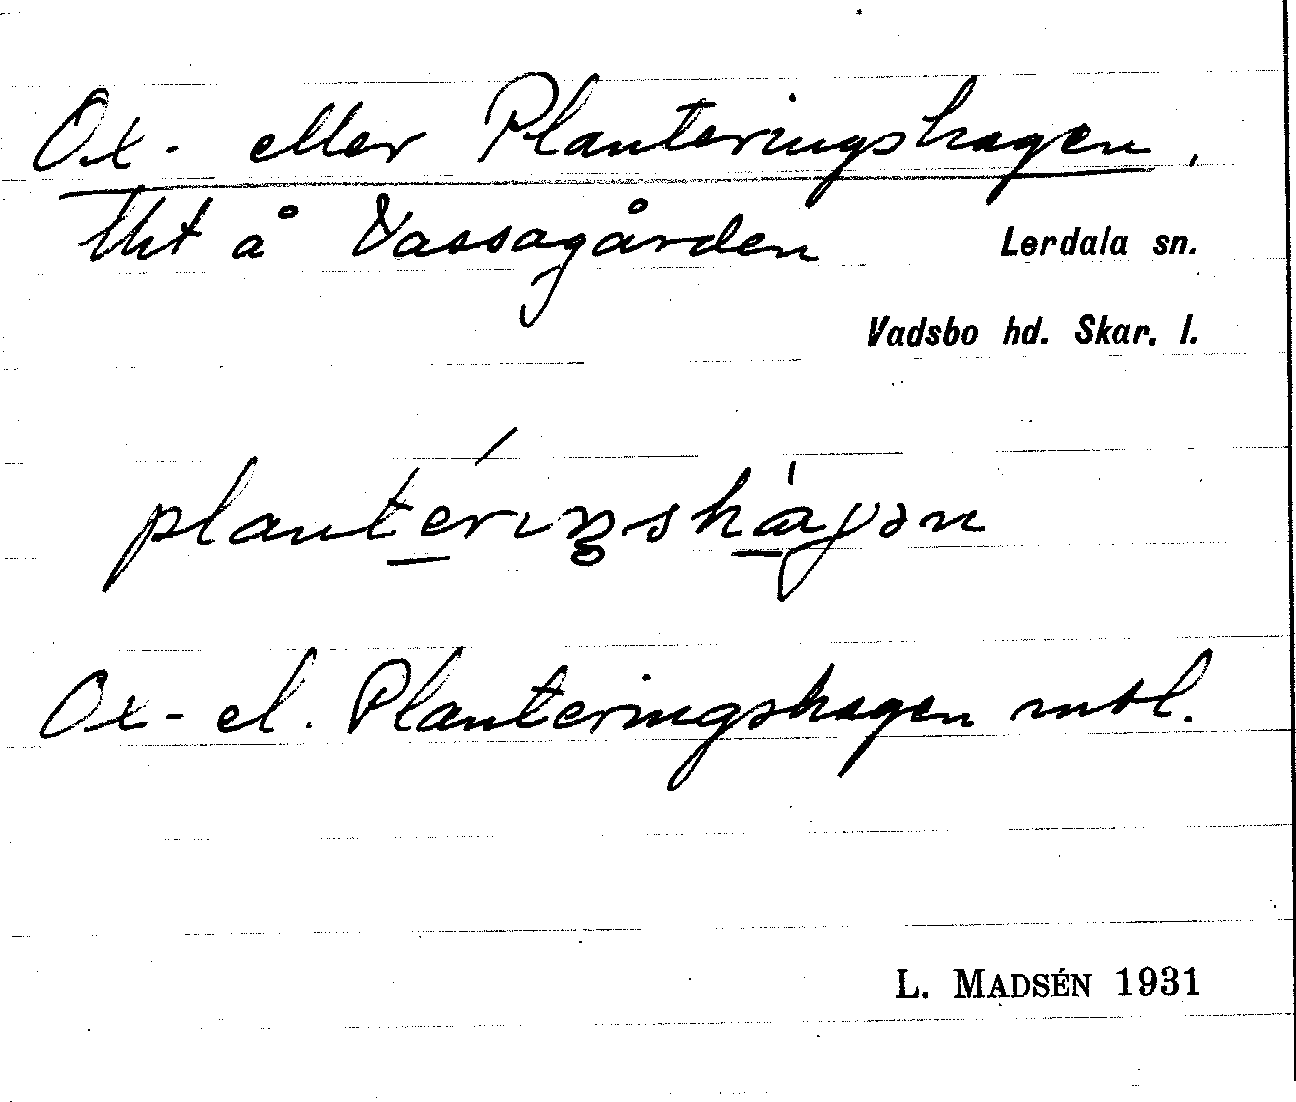 Ox- eller Planteringshagen.
Uht å Vassagården Lerdala sn.
Vadsbo hd. Skar. l.
plantériŋshágən
Ox- el. Planteringshagen mtl.
L. MADSÉN 1931